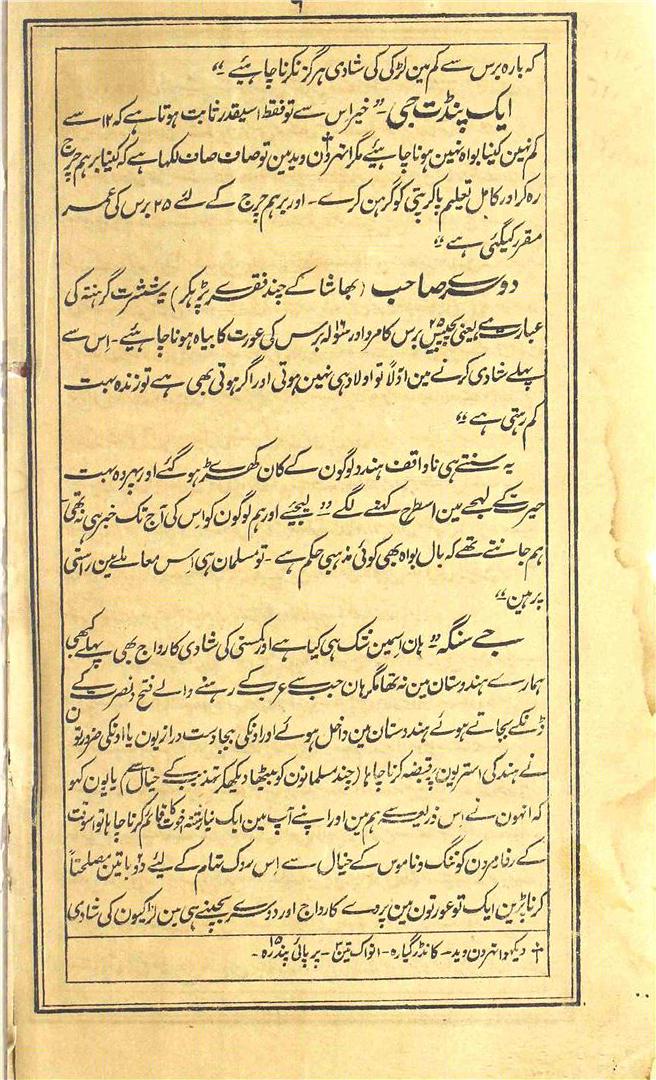 ۹
کہ بارہ برس سے کم مین لڑکی کی شادی ہرگز نکرنا چاہئیے“
ایک پنڈت جی۔”خیر اس سے تو فقط اسیقدر ثابت ہوتا ہے کہ ۱۲ سے
کم نہین کینا بواہ نہین ہونا چاہئیے مگر اتھرون† وید مین تو صاف صاف لکھا ہے کہ کینا برہم چرج
رہ کر اور کامل تعلیم پا کر پتی کو گرہن کرے۔ اور برہم چرج کے لئے ۲۵ برس کی عمر
مقرر کیگئی ہے“
دوسرے صاحب (بھاشا کے چند فقرے پڑہکر) ششرت گرنتہ کی
عبارت ہے یعنی پچیس ۲۵ برس کا مرد اور سولہ ۱۶ برس کی عورت کا بیاہ ہونا چاہئیے۔ اس سے
پہلے شادی کرنے مین اوّلاً تو اولاد ہی نہین ہوتی اور اگر ہوتی بھی ہے تو زندہ بہت
کم رہتی ہے“
یہ سنتے ہی ناواقف ہندو لوگون کے کان کھڑے ہو گئے اور پہر وہ بہت
حیرت کے لہجے مین اسطرح کہنے لگے ”لیجئے اور ہم لوگون کو اس کی آج تک خبر ہی نہ تھی۔
ہم جانتے تھے کہ بال بواہ بھی کوئی مذہبی حکم ہے۔ تو مسلمان ہی اِس معاملے مین راستی
پر ہین“
جے سنگہ ”ہان اسمین شک ہی کیا ہے اور کمسنی کی شادی کا رواج بھی پہلے کبھی
ہمارے ہندوستان مین نہ تھا مگر ہان جب سے عرب کے رہنے والے فتح و نصرت کے
ڈنکے بجاتے ہوئے ہندوستان مین داخل ہوئے اور اونکی بیجا دست درازیون یا اونکی ضرورتون
نے ہند کی استریون پر قبضہ کرنا چاہا (چند مسلمانون کو بیٹھا دیکھکر تہذیب کے خیال سے) یا یون کہو
کہ انہون نے اِس ذریعے سے ہم مین اور اپنے آپ مین ایک نیا رشتہ اخوت کا قائم کرنا چاہا تو اسوقت
کے رفارمرون کو ننگ و ناموس کے خیال سے اِس روک تہام کے لئے دو باتین مصلحتاً
کرنا پڑین ایک تو عورتون مین پردے کا رواج اور دوسرے بچپنے ہی مین لڑکیون کی شادی
† دیکہو اتہرون وید۔ کانڈ گیارہ۔ انواک تین ۳۔ پرپائی پندرہ ۱۵۔